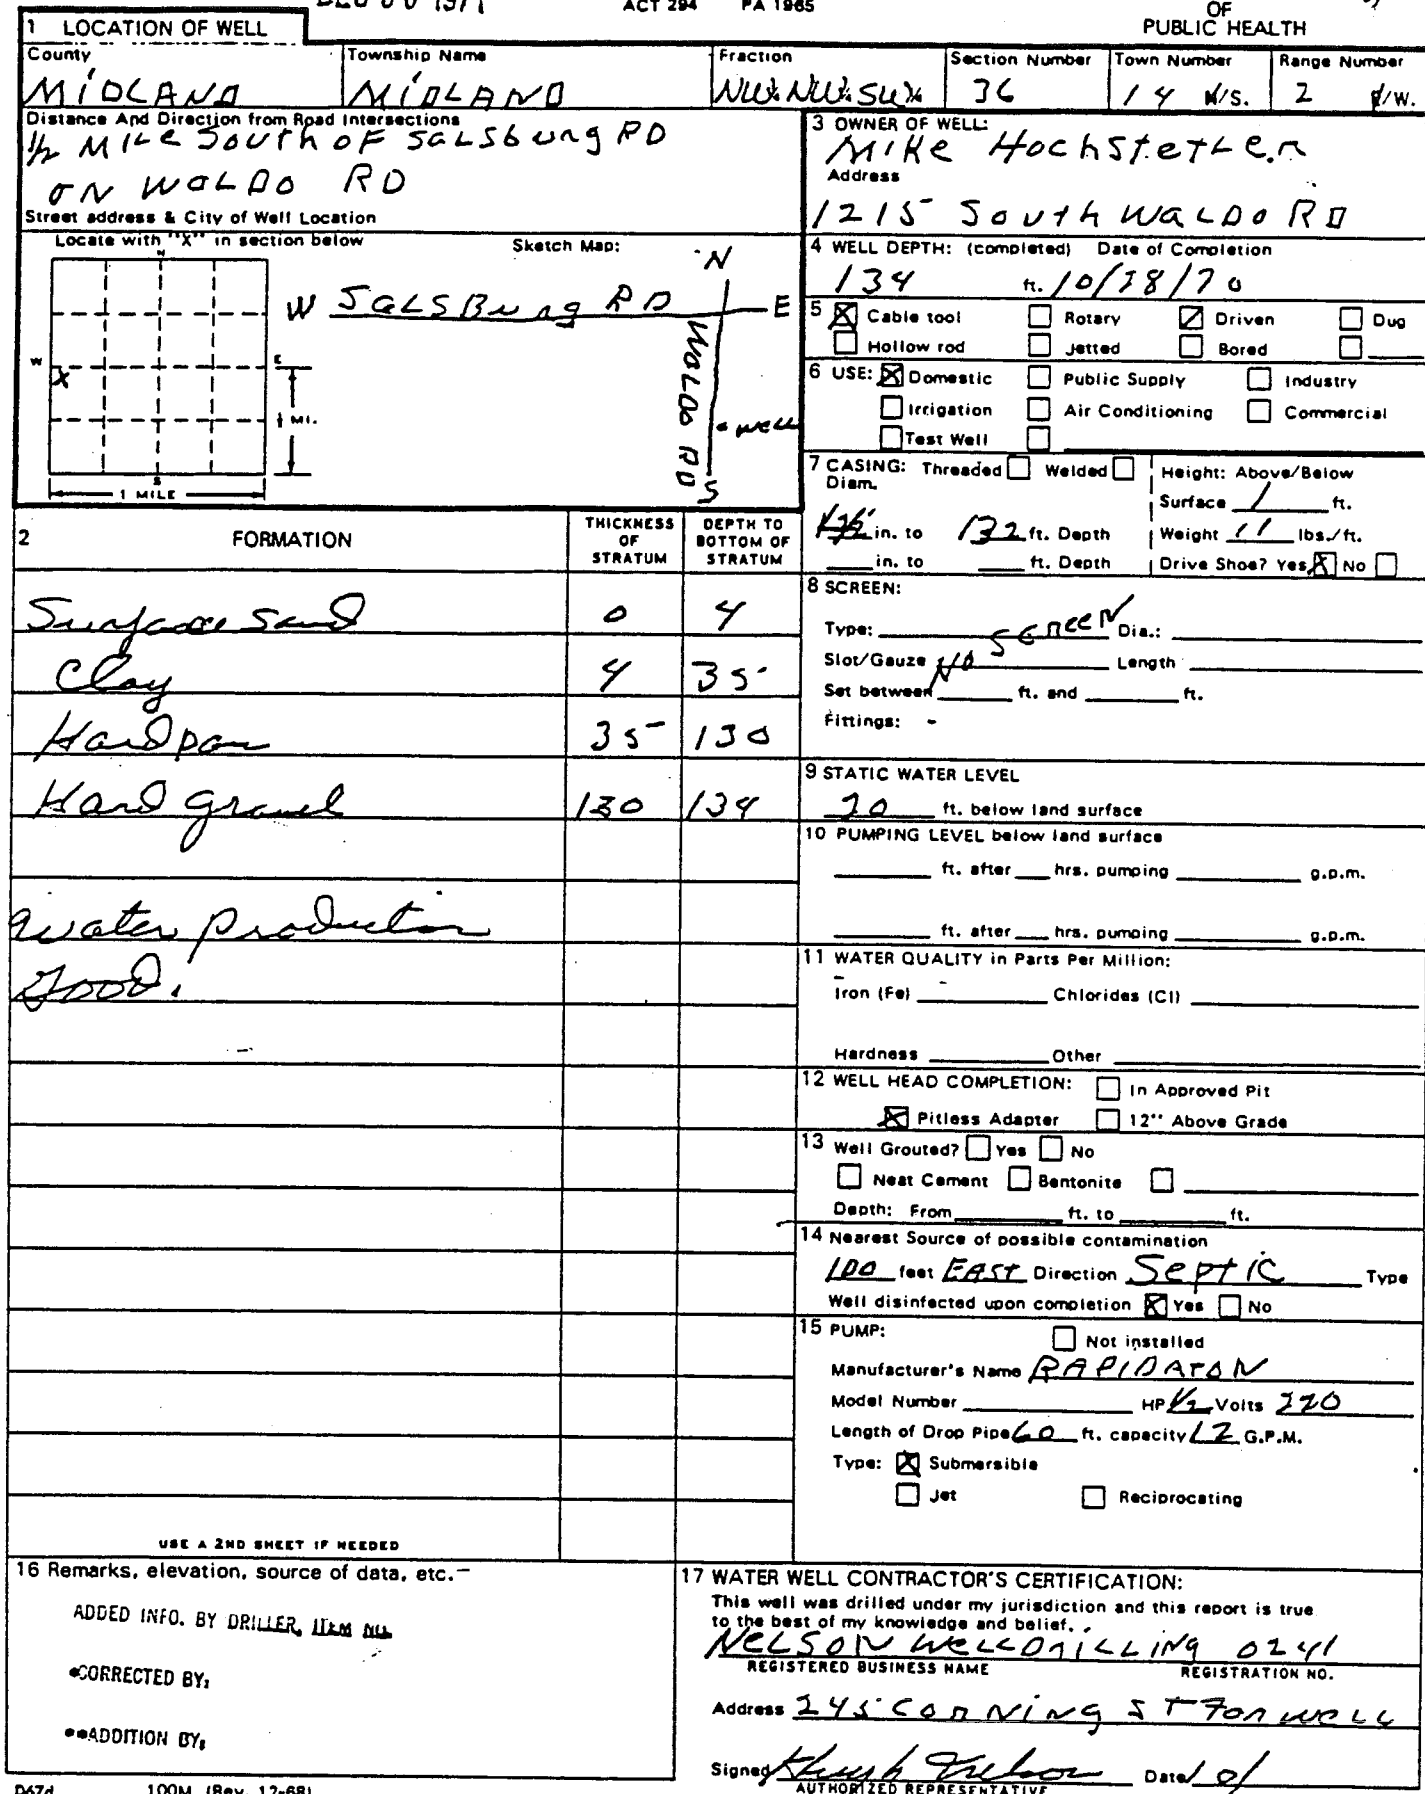 ACT 294 PA 1965
OF
PUBLIC HEALTH
1 LOCATION OF WELL
County
MIDLAND
Township Name
MIDLAND
Fraction
NW¼ NW¼ SW¼
Section Number
36
Town Number
14 N/S.
Range Number
2 E/W.
Distance And Direction from Road Intersections
1/2 MILE South OF SALSburg RD
ON WALDO RD
Street address & City of Well Location
Locate with "X" in section below
Sketch Map:
N
W SALSBurg RD E
WALDO RD
WELL
S
N
W
E
X
¼ MI.
S
1 MILE
3 OWNER OF WELL:
Mike HochstetLer
Address
1215 South WALDO RD
4 WELL DEPTH: (completed) Date of Completion
134 ft. 10/28/70
5 Cable tool Rotary Driven Dug
Hollow rod Jetted Bored
6 USE: Domestic Public Supply Industry
Irrigation Air Conditioning Commercial
Test Well
7 CASING: Threaded Welded
Diam.
in. to 132 ft. Depth
in. to ft. Depth
Height: Above/Below
Surface 1 ft.
Weight 11 lbs./ft.
Drive Shoe? Yes No
2 FORMATION
THICKNESS OF STRATUM
DEPTH TO BOTTOM OF STRATUM
Surface Sand 0 4
Clay 4 35
Hardpan 35 130
Hard gravel 130 134
water production
good.
USE A 2ND SHEET IF NEEDED
8 SCREEN:
Type: Dia.:
NO SCREEN
Slot/Gauze Length
Set between ft. and ft.
Fittings: -
9 STATIC WATER LEVEL
20 ft. below land surface
10 PUMPING LEVEL below land surface
ft. after hrs. pumping g.p.m.
ft. after hrs. pumping g.p.m.
11 WATER QUALITY in Parts Per Million:
Iron (Fe) Chlorides (Cl)
Hardness Other
12 WELL HEAD COMPLETION: In Approved Pit
Pitless Adapter 12" Above Grade
13 Well Grouted? Yes No
Neat Cement Bentonite
Depth: From ft. to ft.
14 Nearest Source of possible contamination
100 feet EAST Direction Septic Type
Well disinfected upon completion Yes No
15 PUMP: Not installed
Manufacturer's Name RAPIDATON
Model Number HP 1/2 Volts 220
Length of Drop Pipe 60 ft. capacity 12 G.P.M.
Type: Submersible
Jet Reciprocating
16 Remarks, elevation, source of data, etc.
ADDED INFO. BY DRILLER, ITEM NO.
*CORRECTED BY:
**ADDITION BY:
17 WATER WELL CONTRACTOR'S CERTIFICATION:
This well was drilled under my jurisdiction and this report is true
to the best of my knowledge and belief.
NELSON WELL DRILLING 0241
REGISTERED BUSINESS NAME REGISTRATION NO.
Address 245 CORNING ST FARWELL
Signed Hugh Nelson Date
AUTHORIZED REPRESENTATIVE
D67d 100M (Rev. 12-68)